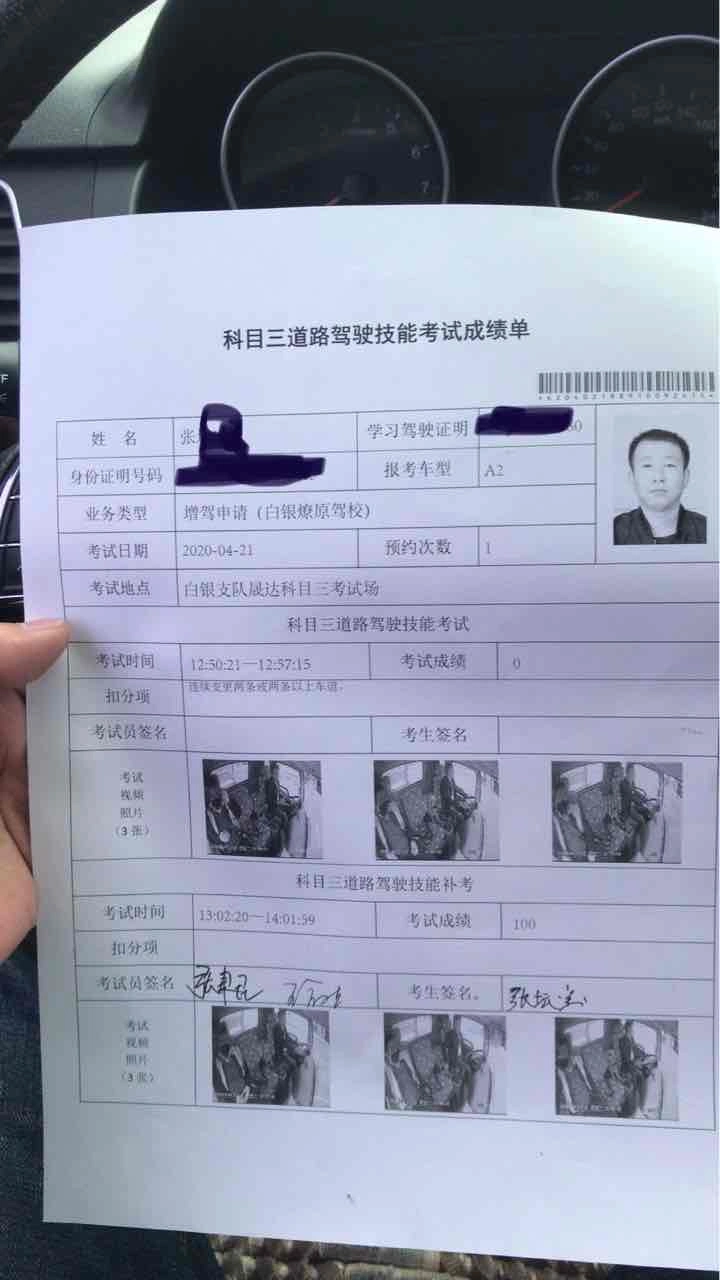 6
7
科目三道路驾驶技能考试成绩单
姓 名 张 学习驾驶证明 60
身份证明号码 报考车型 A2
业务类型 增驾申请（白银燎原驾校）
考试日期 2020-04-21 预约次数 1
考试地点 白银支队晟达科目三考试场
科目三道路驾驶技能考试
考试时间 12:50:21—12:57:15 考试成绩 0
扣分项 连续变更两条或两条以上车道。
考试员签名 考生签名
考试
视频
照片
（3 张）
科目三道路驾驶技能补考
考试时间 13:02:20—14:01:59 考试成绩 100
扣分项
考试员签名 考生签名。
考试
视频
照片
（3 张）